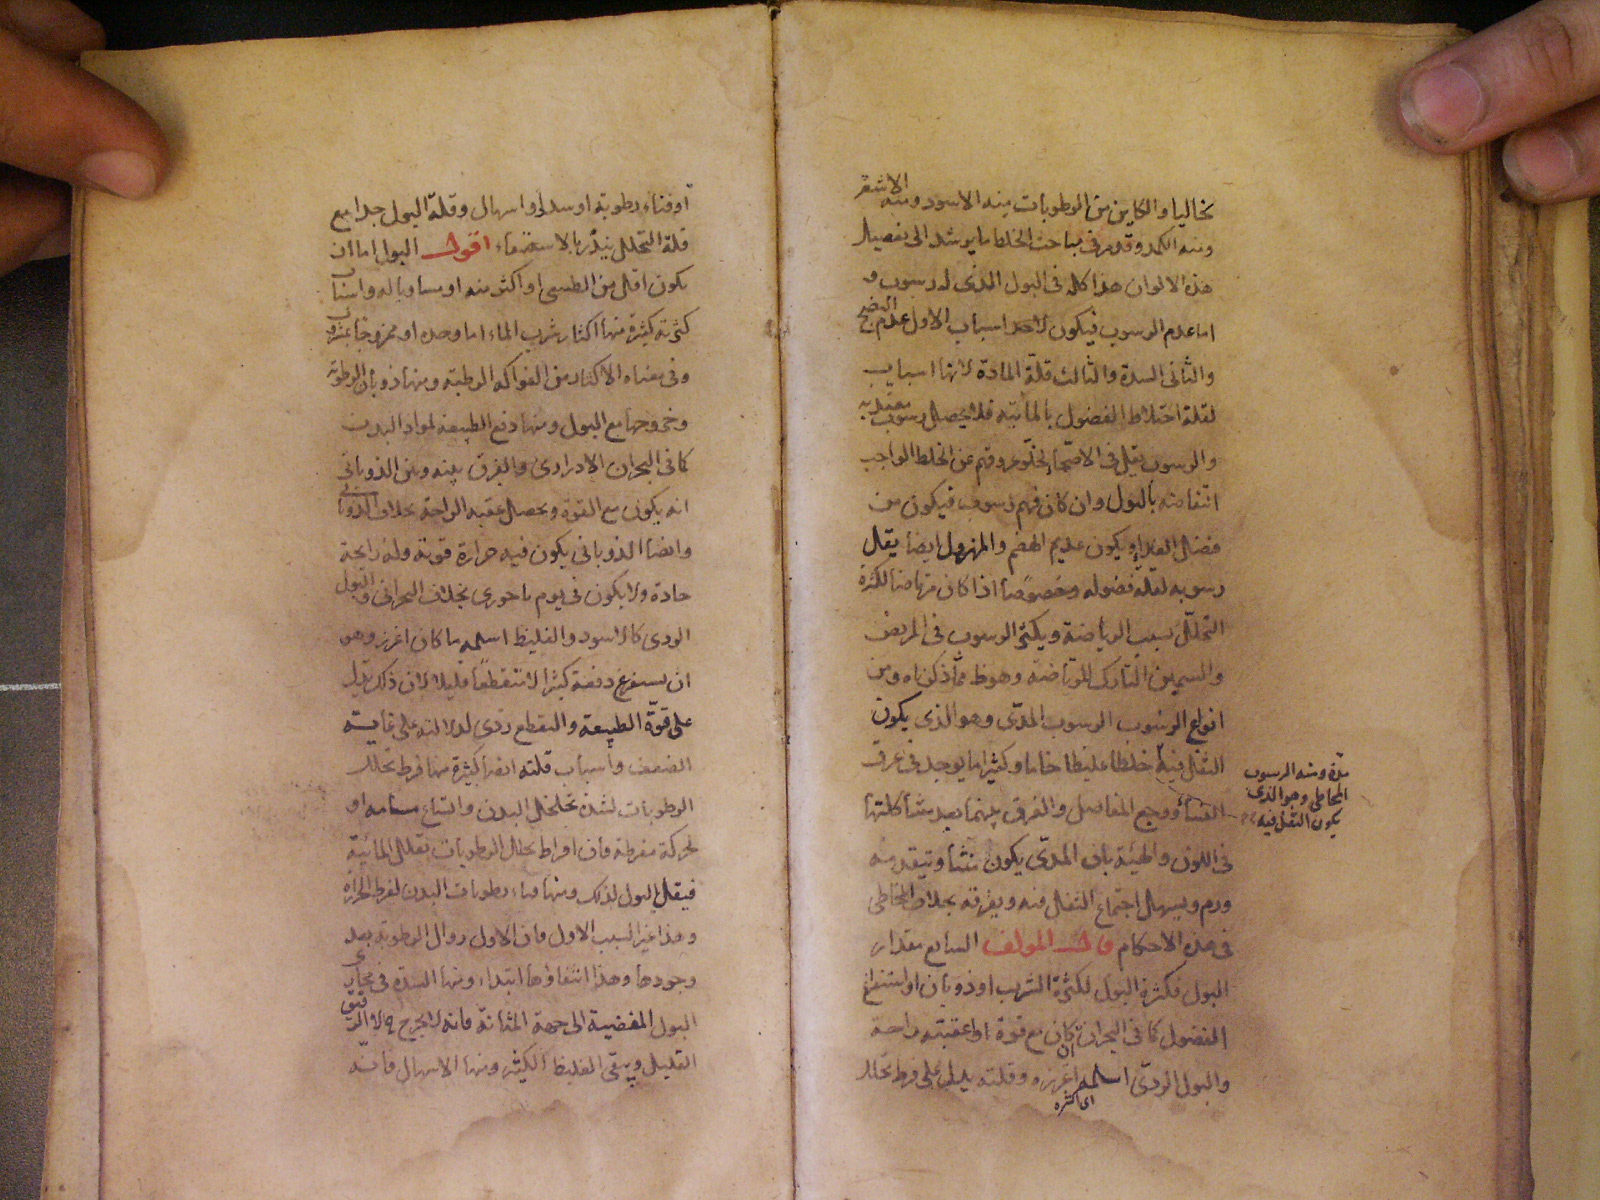 نخاليا والكاين من الرطوبات منه الاسود ومنه الاشقر
ومنه الكمد وقد مر فى مباحث الخلط ما يرشد الى تفصيل
هذه الالوان هذا كله فى البول الذى له رسوب و
اما عدم الرسوب فيكون لاحد اسباب الاول عدم النضج
والثانى السدة والثالث قلة المادة لانها اسباب
لقلة اختلاط الفضول بالمائية فلا يحصل رسوب معتد به
والرسوب يقل فى الاصحا لخلو عروقهم عن الخلط الواجب
انتفاضه بالبول وان كان فيهم رسوب فيكون من
فضل الغذا ويكون عديم الهضم والمهزول ايضا يقل
رسوبه لقلة فضوله وخصوصًا اذا كان مرتاضا لكثرة
التحلّل بسبب الرياضة ويكثر الرسوب فى المريض
والسمين التارك للرياضة وهو ظ ممّا ذكرناه ومن
انواع الرسوب الرسوب المدّى وهو الذى يكون
الثفل فيه خلطا غليظا خاما وكثيرا ما يوجد فى عرق
النسأ ووجع المفاصل والفرق بينهما بعد مشاكلتها
فى اللون والهيئة بان المدّى يكون منتنا ويتقدمه
ورم ويسهل اجتماع الثفل منه وتفرقه بخلاف المخاطى
فى هذه الاحكام قال المولف السابع مقدار
البول فكثرة البول لكثرة الشرب او ذوبان او استفراغ
الفضول كما فى البحران ان كان مع قوة او اعقبته راحة
والبول الردّى اسلمه اغزره وقلته يدل على فرط تحلل
اى اكثره
مدّة ومنه الرسوب
المخاطى وهو الذى
يكون الثفل فيه
او فناء رطوبة او سدد او اسهال وقلة البول جدا مع
قلة التحلل ينذر بالاستسقاء اقول البول اما ان
يكون اقل من الطبيعى او اكثر منه او مساويا له واسباب
كثرته كثيرة منها اكثار شرب الماء اما وحده او ممزوجا بشراب
وفى معناه الاكثار من الفواكه الرطبة ومنها ذوبان الرطوبة
وخروجها مع البول ومنها دفع الطبيعة لمواد البدن
كما فى البحران الادرارى والفرق بينه وبين الذوبانى
انه يكون مع القوة ويحصل عقبه الراحة بخلاف الذوبانى
وايضا الذوبانى يكون فيه حرارة قوية وله رائحة
حادة ولا يكون فى يوم باحورى بخلاف البحرانى والبول
الردى كالاسود والغليظ اسلمه ما كان اغزر وهو
ان يستفرغ دفعة كثيرا لا متقطعًا قليلا لان ذلك يدل
على قوّة الطبيعة والتقطع ردى لدلالته على غاية
الضعف واسباب قلته ايضا كثيرة منها فرط تحلل
الرطوبات لشدة تخلخل البدن واتساع مسامه او
لحركة مفرطة فان افراط تحلل الرطوبات يقلل المائية
فيقل البول لذلك ومنها فناء رطوبات البدن لفرط الحرارة
وهذا غير السبب الاول فان الاول زوال الرطوبة بعد
وجودها وهذا انتفاؤها ابتداء ومنها السدة فى مجارى
البول المفضية الى جهة المثانة فانه لا يخرج ح الا الرقيق
القليل ويبقى الغليظ الكثير ومنها الاسهال فانه